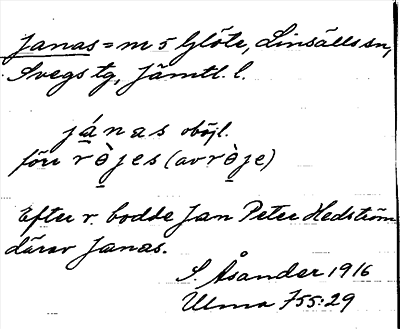 Janas = m 5 Glöte, Linsälls sn,
Svegs tg, Jämtl. l.
jánas oböjl.
förr ròjes (av ròje)
Efter r. bodde Jan Peter Hedström
därav Janas.
S. Åsander 1916
Ulma 755:29